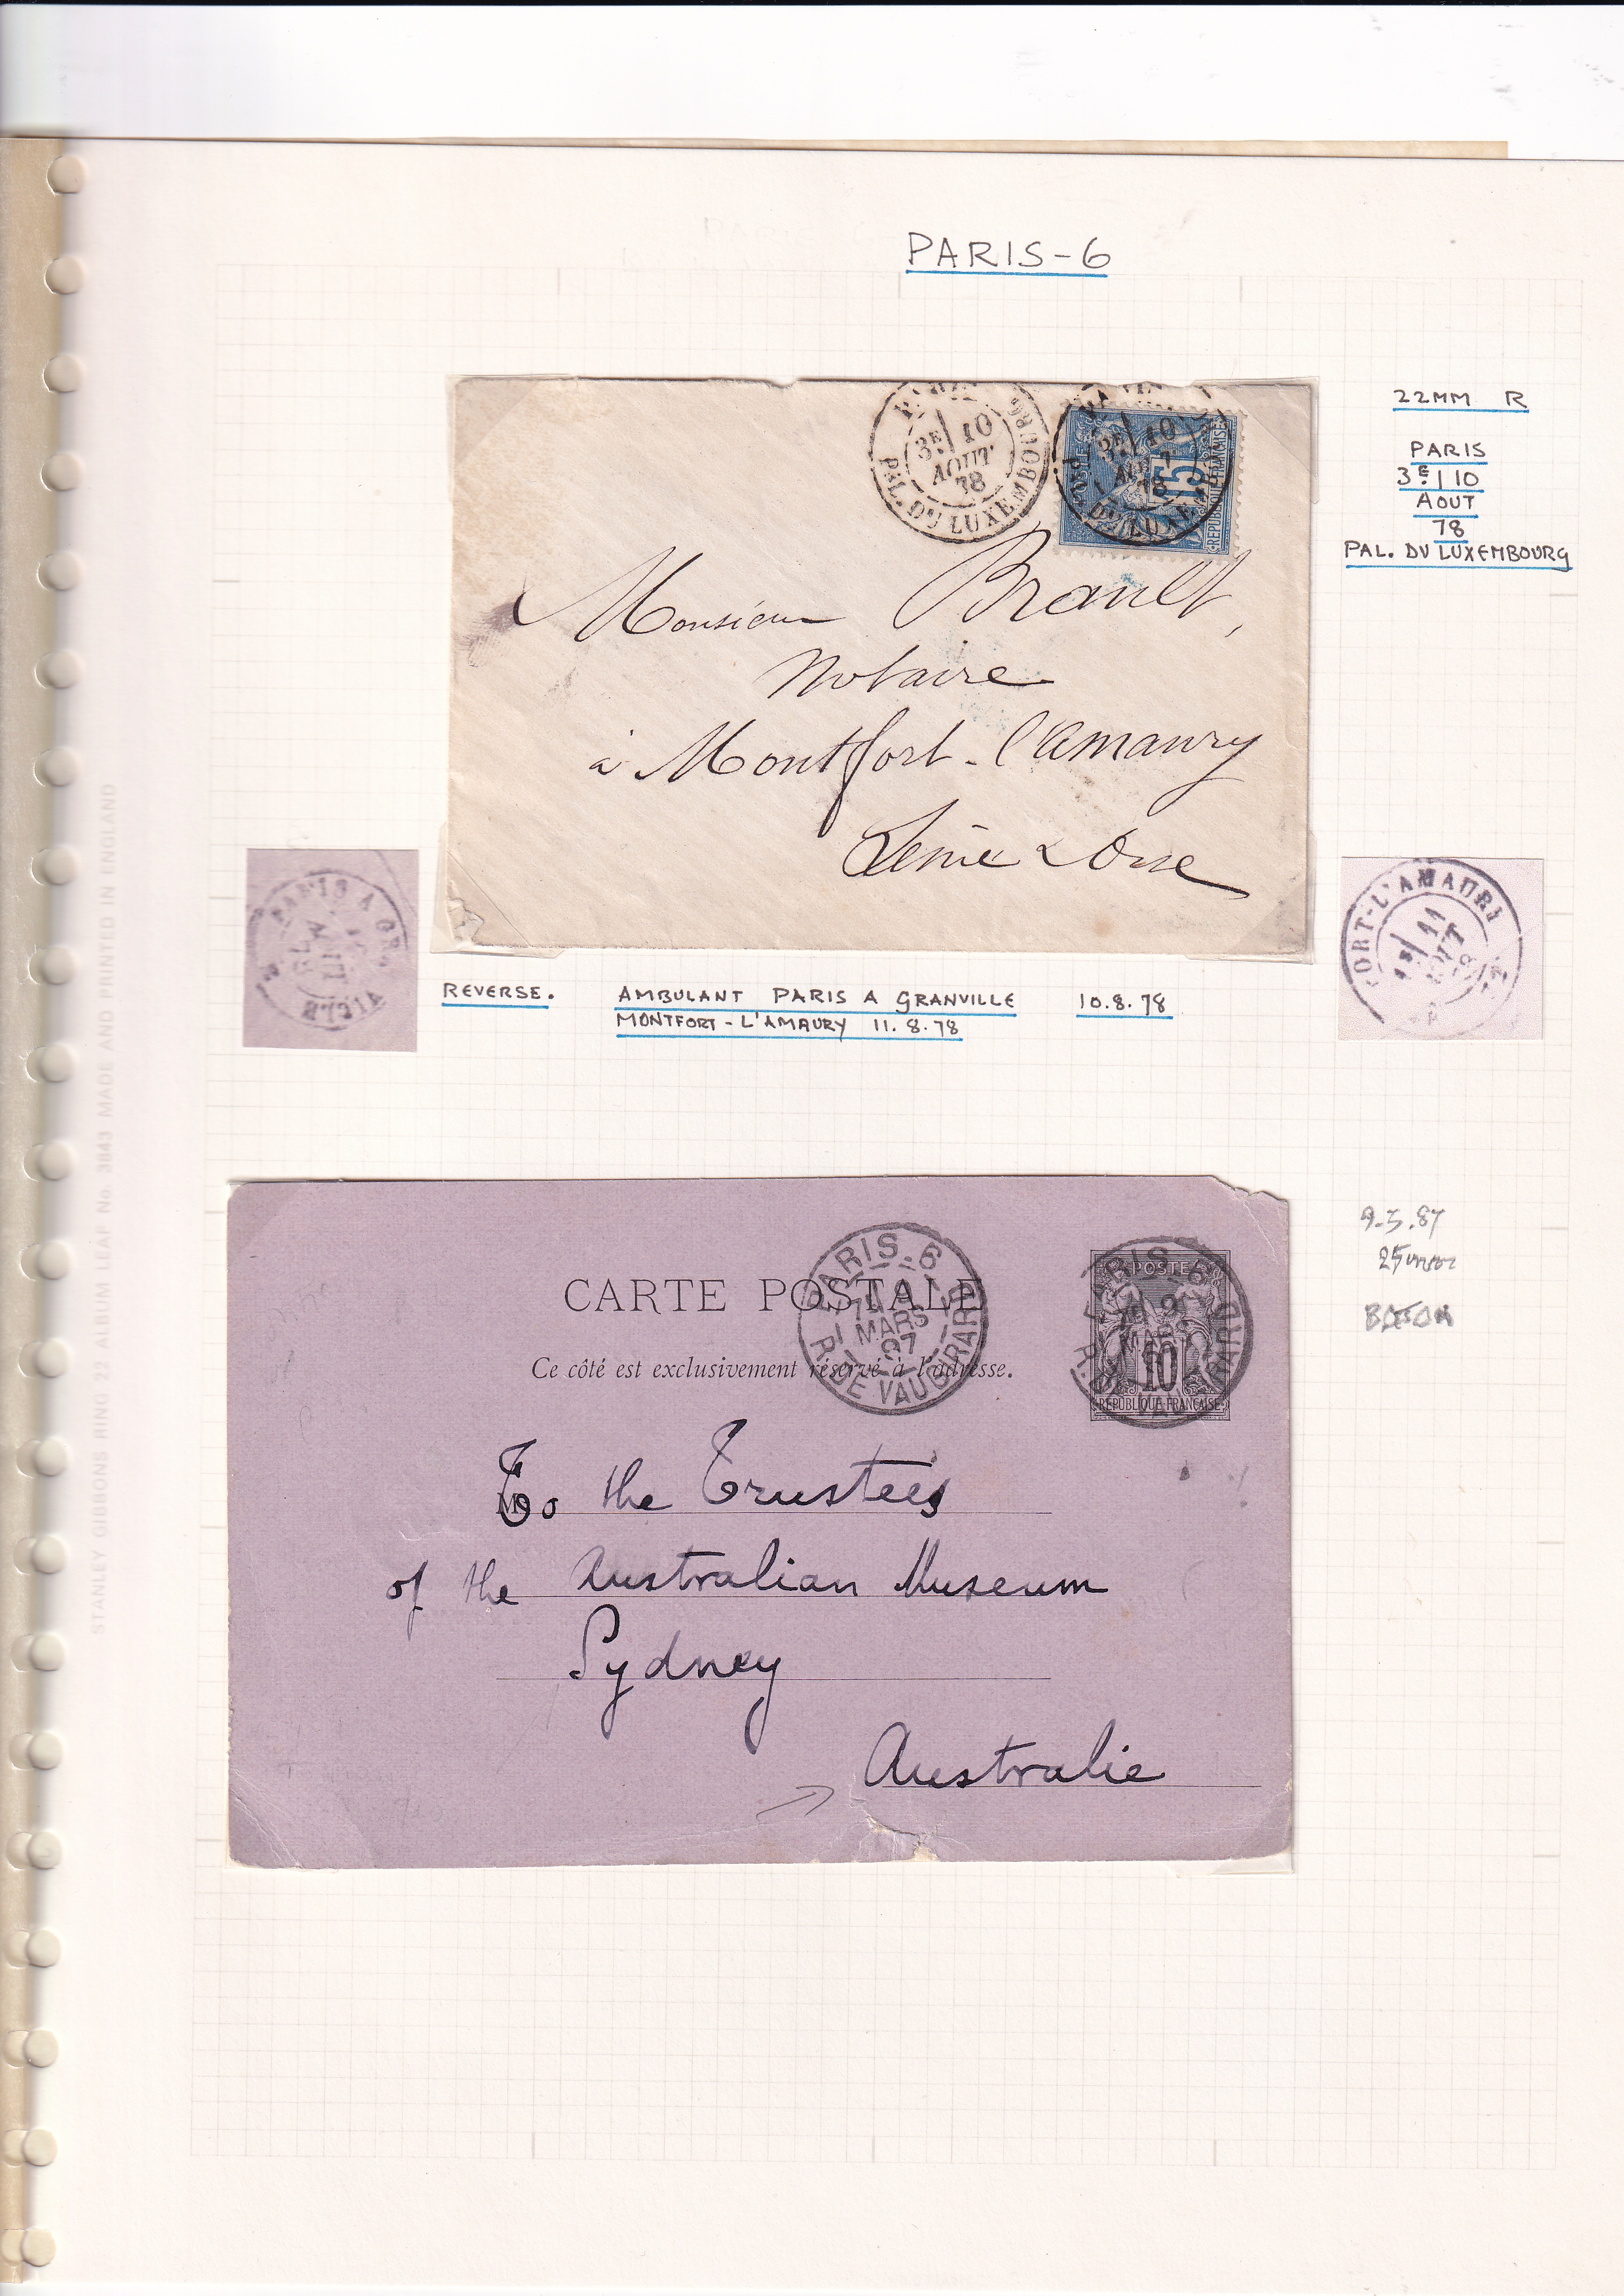 PARIS-6
22MM R
PARIS
3E | 10
AOUT
78
PAL. DU LUXEMBOURG
3E 10
AOUT
78
PAL. DU LUXEMBOURG
3E 10
78
PAL. DU LUXEM
15
REPUBLIQUE FRANÇAISE
Monsieur Brault,
Notaire
à Montfort-l'Amaury
Seine & Oise
PARIS A GR
FORT-L'AMAURY
11
REVERSE. AMBULANT PARIS A GRANVILLE 10.8.78
MONTFORT-L'AMAURY 11.8.78
STANLEY GIBBONS RING 22 ALBUM LEAF No. 3843 MADE AND PRINTED IN ENGLAND
25mm
PARIS-6
MARS
97
R. DE VAUGIRARD
POSTE
10
REPUBLIQUE FRANÇAISE
CARTE POSTALE
Ce côté est exclusivement réservé à l'adresse.
To the Trustees
of the Australian Museum
Sydney
Australie